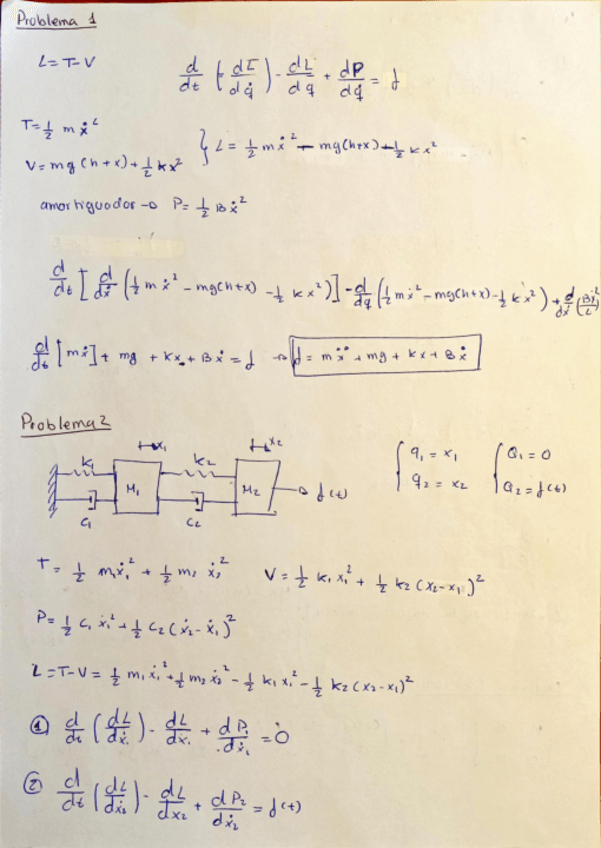 Problema 1
L = T - V
d/dt (dL/dq̇) - dL/dq + dP/dq̇ = f
T = 1/2 m ẋ²
V = mg (h + x) + 1/2 kx²
} L = 1/2 m ẋ² - mg(h+x) - 1/2 k x²
amortiguador → P = 1/2 B ẋ²
d/dt [ d/dẋ (1/2 m ẋ² - mg(h+x) - 1/2 k x²)] - d/dq (1/2 m ẋ² - mg(h+x) - 1/2 k x²) + d/dẋ (Bẋ²/2)
d/dt [mẋ] + mg + kx + Bẋ = f → f = mẍ + mg + kx + Bẋ
Problema 2
x₁ x₂
K₁ k₂
M₁ M₂ → f(t)
C₁ C₂
{ q₁ = x₁ { Q₁ = 0
q₂ = x₂ Q₂ = f(t)
T = 1/2 m₁ẋ₁² + 1/2 m₂ ẋ₂² V = 1/2 k₁ x₁² + 1/2 k₂ (x₂ - x₁)²
P = 1/2 C₁ ẋ₁² + 1/2 C₂ (ẋ₂ - ẋ₁)²
L = T - V = 1/2 m₁ ẋ₁² + 1/2 m₂ ẋ₂² - 1/2 k₁ x₁² - 1/2 k₂ (x₂ - x₁)²
① d/dt (dL/dẋ₁) - dL/dx₁ + dP₁/dẋ₁ = 0
② d/dt (dL/dẋ₂) - dL/dx₂ + dP₂/dẋ₂ = f(t)